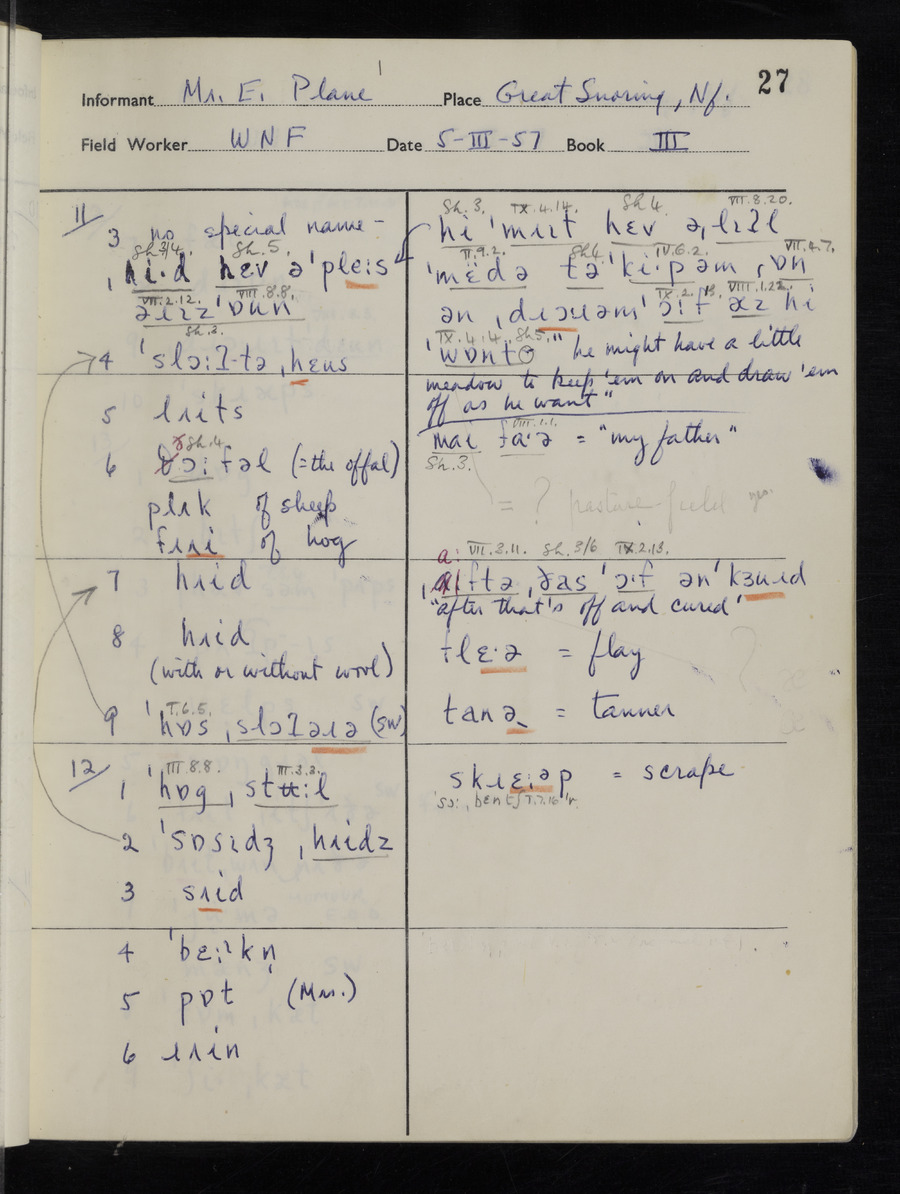 27
Informant Mr. E. Plane Place Great Snoring, Nf.
Field Worker WNF Date 5-III-57 Book III
11/
3 no special name -
Sh.3/4. Sh.5.
ˌhi·d hɛv ə ˈplɛis
VII.2.12. VIII.8.8.
ˈɒun
Sh.3.
4 ˈslɔ:ʔtə ˌhɛus
5 lɪits
6 ɔ:fəl (=the offal)
Sh.4.
plʌk of sheep
fɹɪi of hog
7 hɪid
8 hɪid
(with or without wool)
T.6.5.
9 ˈhɒs ˌslɔʔəɹə (SW)
12/
III.8.8. III.3.3.
1 ˈhɒg ˌstʉ:l
2 ˈsɒsɪdʒ ˌhɪidz
3 sɪid
4 ˈbɛ:ˀkn̩
5 pɒt (Mrs.)
6 ɪɹin
Sh.3. IX.4.14. Sh4. VII.8.20.
hi ˈmɪit hɛv əˌlɪʔl
II.9.2. Sh4. IV.6.2. VII.4.7.
ˈmɛdə tə ˈki:p əm ˌɒn
IX.2.13. VIII.1.22.
ən ˌdɹɔuəm ˈɔ:f æz hi
IX.4.14. Sh5.
ˈwɒntɵ "he might have a little
meadow to keep 'em on and draw 'em
off as he want"
VIII.1.1.
mai fa·ə = "my father"
Sh.3.
= ? pasture-field
a: VII.3.11. Sh.3/6 IX.2.13.
ftə ˌðas ˈɔ·f ən ˈkɜuɪd
"after that's off and cured"
flɛ·ə = flay
tanə = tanner
skɹɛ:əp = scrape